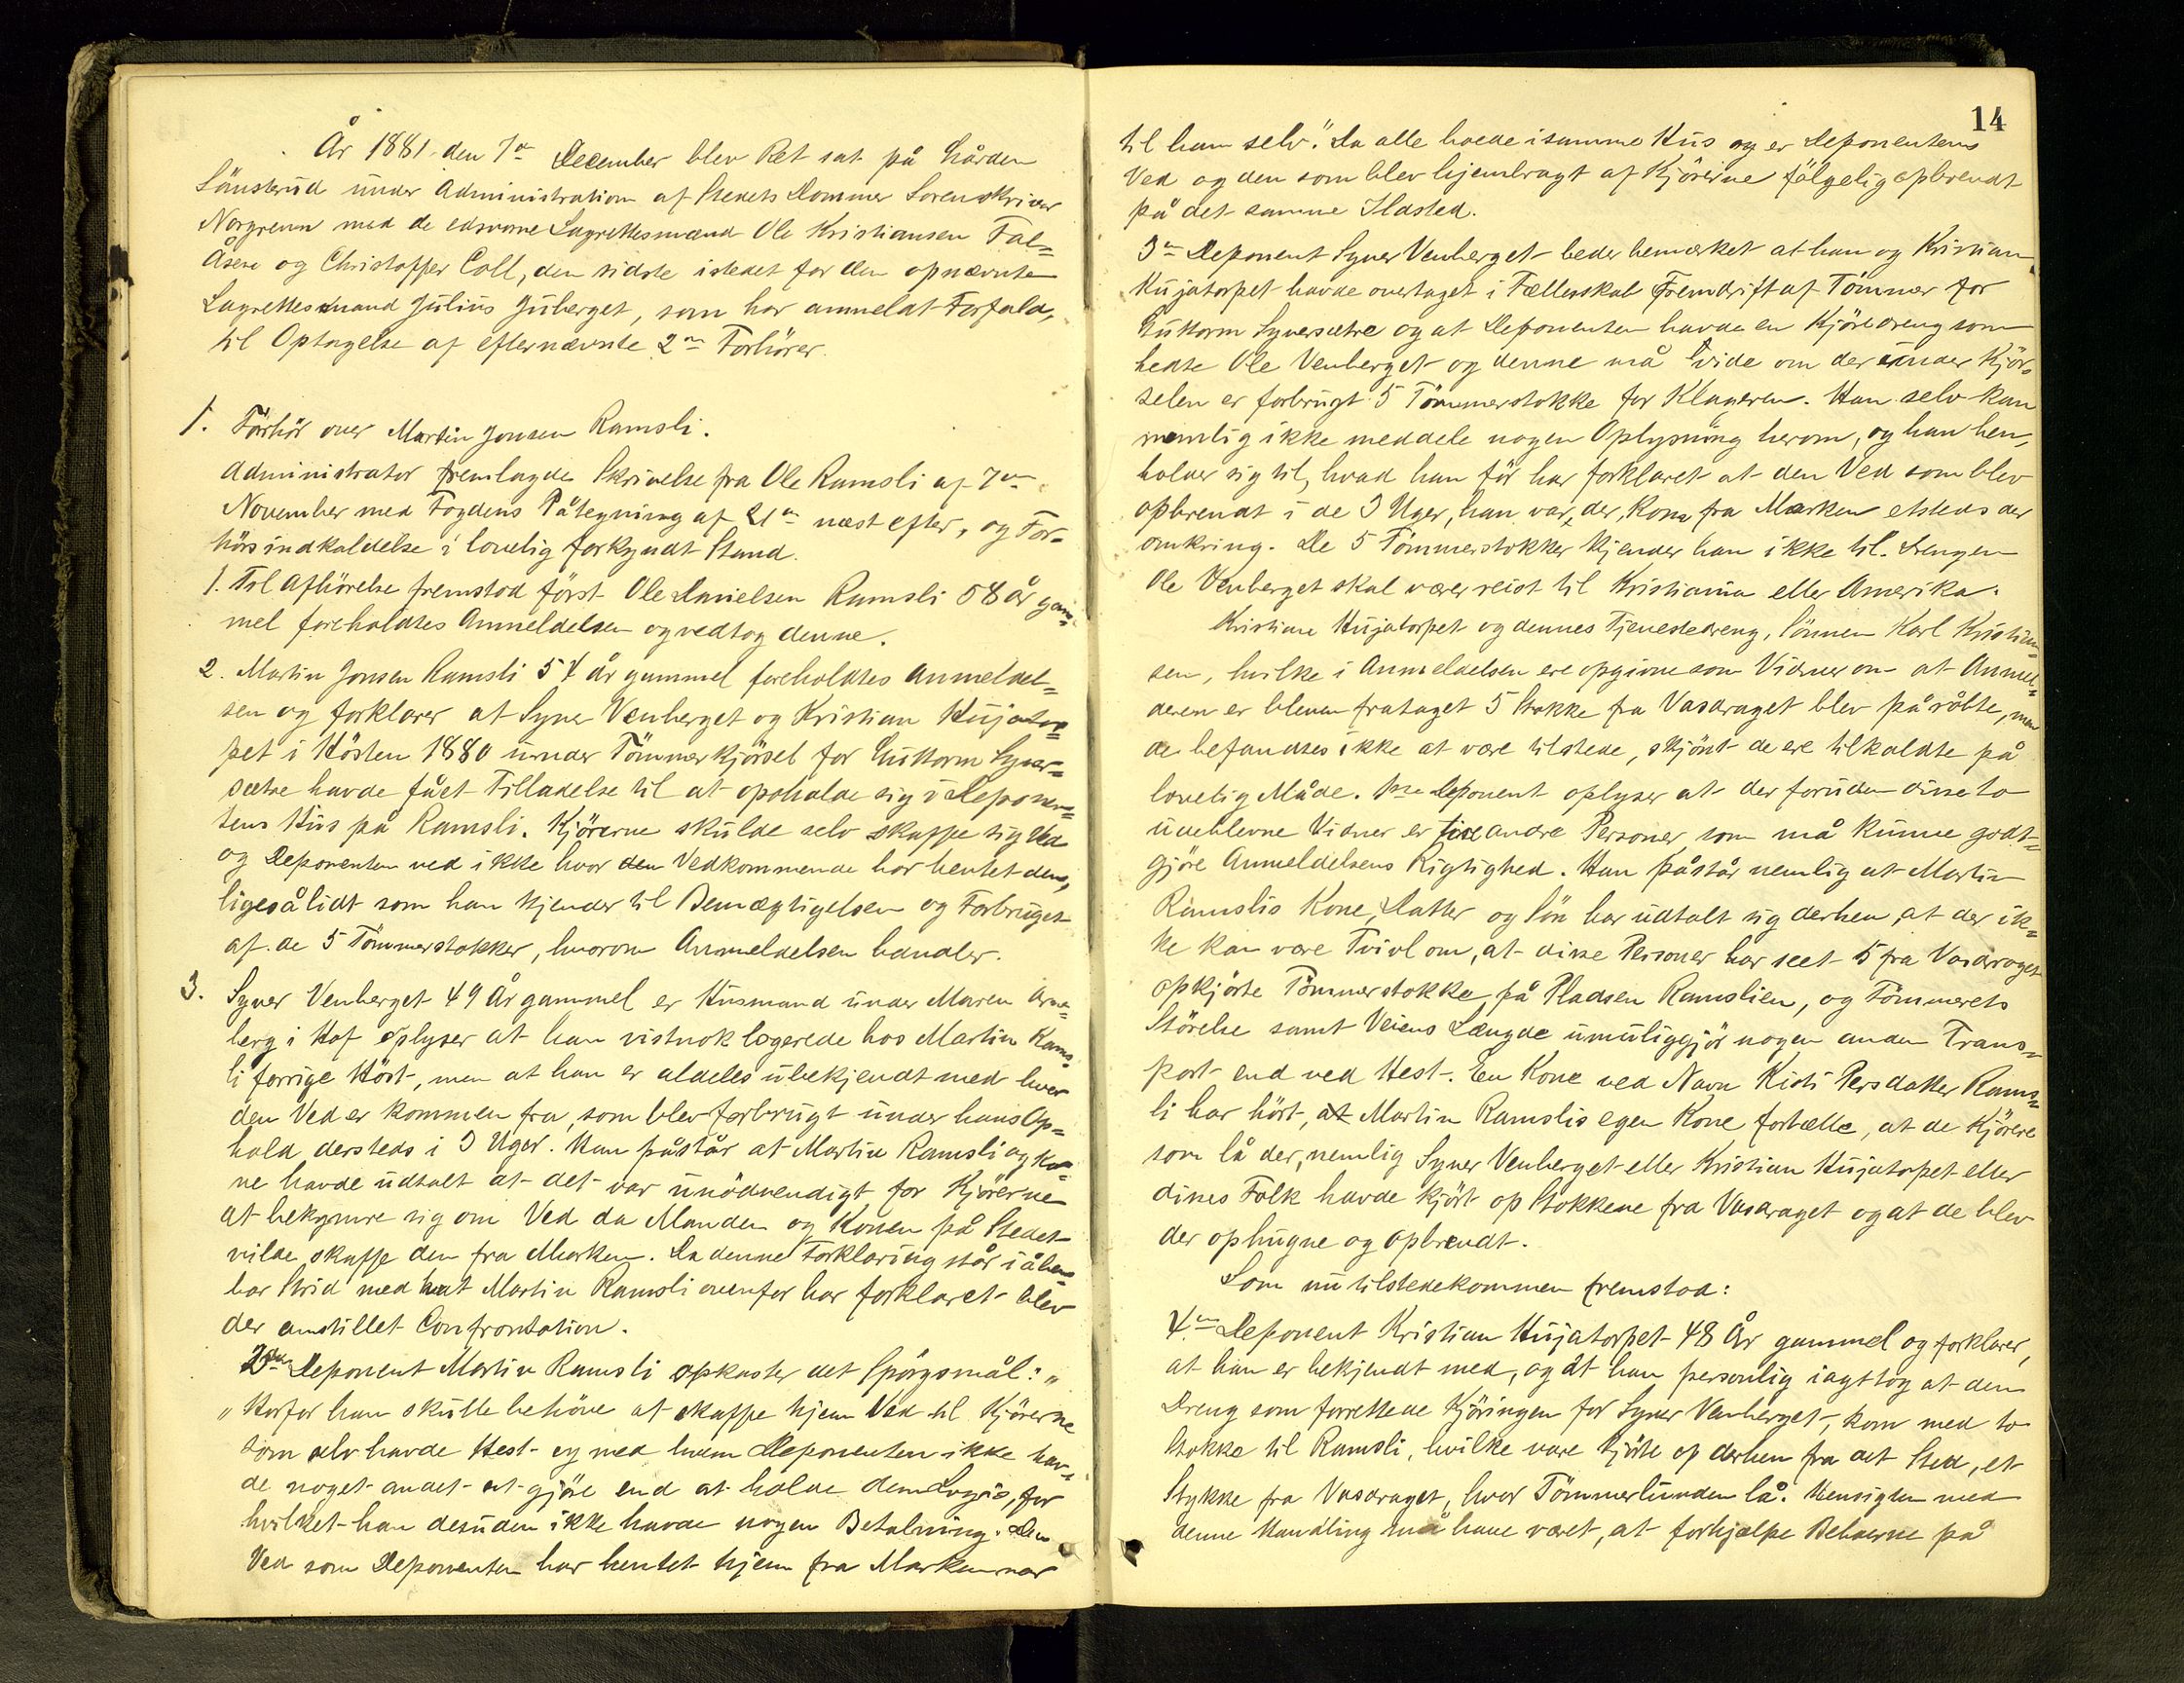 År 1881 den 7de December blev Ret sat på Gården
Sönsterud under Administration af Stedets Dommer Sorenskriver
Norgrenn med de edsvorne Lagrettesmænd Ole Kristiansen Fal=
Åsene og Christoffer Coll, den sidste istedet for den opnævnte
Lagrettesmand Julius Juberget, som har anmeldt Forfald,
til Optagelse af efternævnte 2de Forhörer.
1. Forhör over Martin Jonsen Ramsli.
Administrator fremlagde Skrivelse fra Ole Ramsli af 7de
November med Fogdens Påtegning af 21de næst efter, og For=
hörsindkaldelse i lovelig forkyndt Stand.
1. Til Afhörelse fremstod först Ole Danielsen Ramsli 58 år gam=
mel foreholdtes Anmeldelsen og vedtog denne.
2. Martin Jonsen Ramsli 54 år gammel foreholdtes Anmeldel=
sen og forklarer at Syver Venberget og Kristian Hujator=
pet i Hösten 1880 under Tömmerkjörsel for Guttorm Syver=
sætre havde fået Tilladelse til at opholde sig i Deponen=
tens Hus på Ramsli. Kjörerne skulde selv skaffe sig Ved
og Deponenten ved ikke hvor den Vedkommende har hentet den,
ligesålidt som han kjender til Bemægtigelsen og Forbruget
af de 5 Tömmerstokker, hvorom Anmeldelsen handler.
3. Syver Venberget 49 År gammel er Husmand under Maren Arne=
berg i Hof oplyser at han vistnok logerede hos Martin Rams=
li forrige Höst, men at han er aldeles ubekjendt med hvor
den Ved er kommen fra, som blev forbrugt under hans Op=
hold dersteds i 3 Uger. Han påstår at Martin Ramsli og Ko=
ne havde udtalt at det var unödvendigt for Kjörerne
at bekymre sig om Ved da Manden og Konen på Stedet
vilde skaffe den fra Marken. Da denne Forklaring står i åben=
bar Strid med hvat Martin Ramsli ovenfor har forklaret blev
der anstillet Confrontation.
2den Deponent Martin Ramsli opkaster det Spörgsmål: "
" Horfor han skulle behöve at skaffe hjem Ved til Kjörerne
som selv havde Hest og med hvem Deponenten ikke hav=
de noget andet at gjöre end at holde dem Logis, for
hvilket han desuden ikke havde nogen Betalning. Den
Ved som Deponenten har hentet hjem fra Marken var
14
til ham selv." Da alle boede i samme Hus og er Deponentens
Ved og den som blev hjembragt af Kjörerne fölgelig opbrendt
på det samme Ildsted.
3de Deponent Syver Venberget beder bemærket at han og Kristian
Hujatorpet havde overtaget i Fællesskab Fremdrift af Tömmer for
Guttorm Syversætre og at Deponenten havde en Kjöredreng som
hedte Ole Venberget og denne må vide om der under Kjör=
selen er forbrugt 5 Tömmerstokke for Klageren. Han selv kan
nemlig ikke meddele nogen Oplysning herom, og han hen=
holder sig til, hvad han för har forklaret at den Ved som blev
opbrendt i de 3 Uger, han var der, kom fra Marken etsteds der
omkring. De 5 Tömmerstokker kjender han ikke til. Drengen
Ole Venberget skal være reist til Kristiania eller Amerika.
Kristian Hujatorpet og dennes Tjenestedreng, Sönnen Karl Kristian=
sen, hvilke i Anmeldelsen ere opgivne som Vidner om at Anmel=
deren er bleven frataget 5 Stokke fra Vasdraget blev påråbte, men
de befandtes ikke at være tilstede, skjönt de ere tilkaldte på
lovelig Måde. 1ste Deponent oplyser at der foruden disse to
udeblevne Vidner er fire andre Personer, som må kunne godt=
gjöre Anmeldelsens Rigtighed. Han påstår nemlig at Martin
Ramslis Kone, Datter og Sön har udtalt sig derhen, at der ik=
ke kan være Tvivl om, at disse Personer har seet 5 fra Vasdraget
opkjörte Tömmerstokke på Pladsen Ramslien, og Tömmerets
Störelse samt Veiens Længde umuliggjör nogen anden Trans=
port end ved Hest. En Kone ved Navn Kisti Persdatter Rams=
li har hört, at Martin Ramslis egen Kone fortælle, at de Kjörere
som lå der, nemlig Syver Venberget eller Kristian Hujatorpet eller
disses Folk havde kjört op Stokkene fra Vasdraget og at de blev
der ophugne og opbrendt.
Som nu tilstedekommen fremstod:
4de Deponent Kristian Hujatorpet 48 År gammel og forklarer,
at han er bekjendt med, og at han personlig iagttog at den
Dreng som forrettede Kjöringen for Syver Venberget, kom med to
Stokke til Ramsli, hvilke vare kjörte op derhen fra det Sted, et
Stykke fra Vasdraget, hvor Tömmerlunden lå. Hensigten med
denne Handling må have været, at forhjælpe Beboerne på